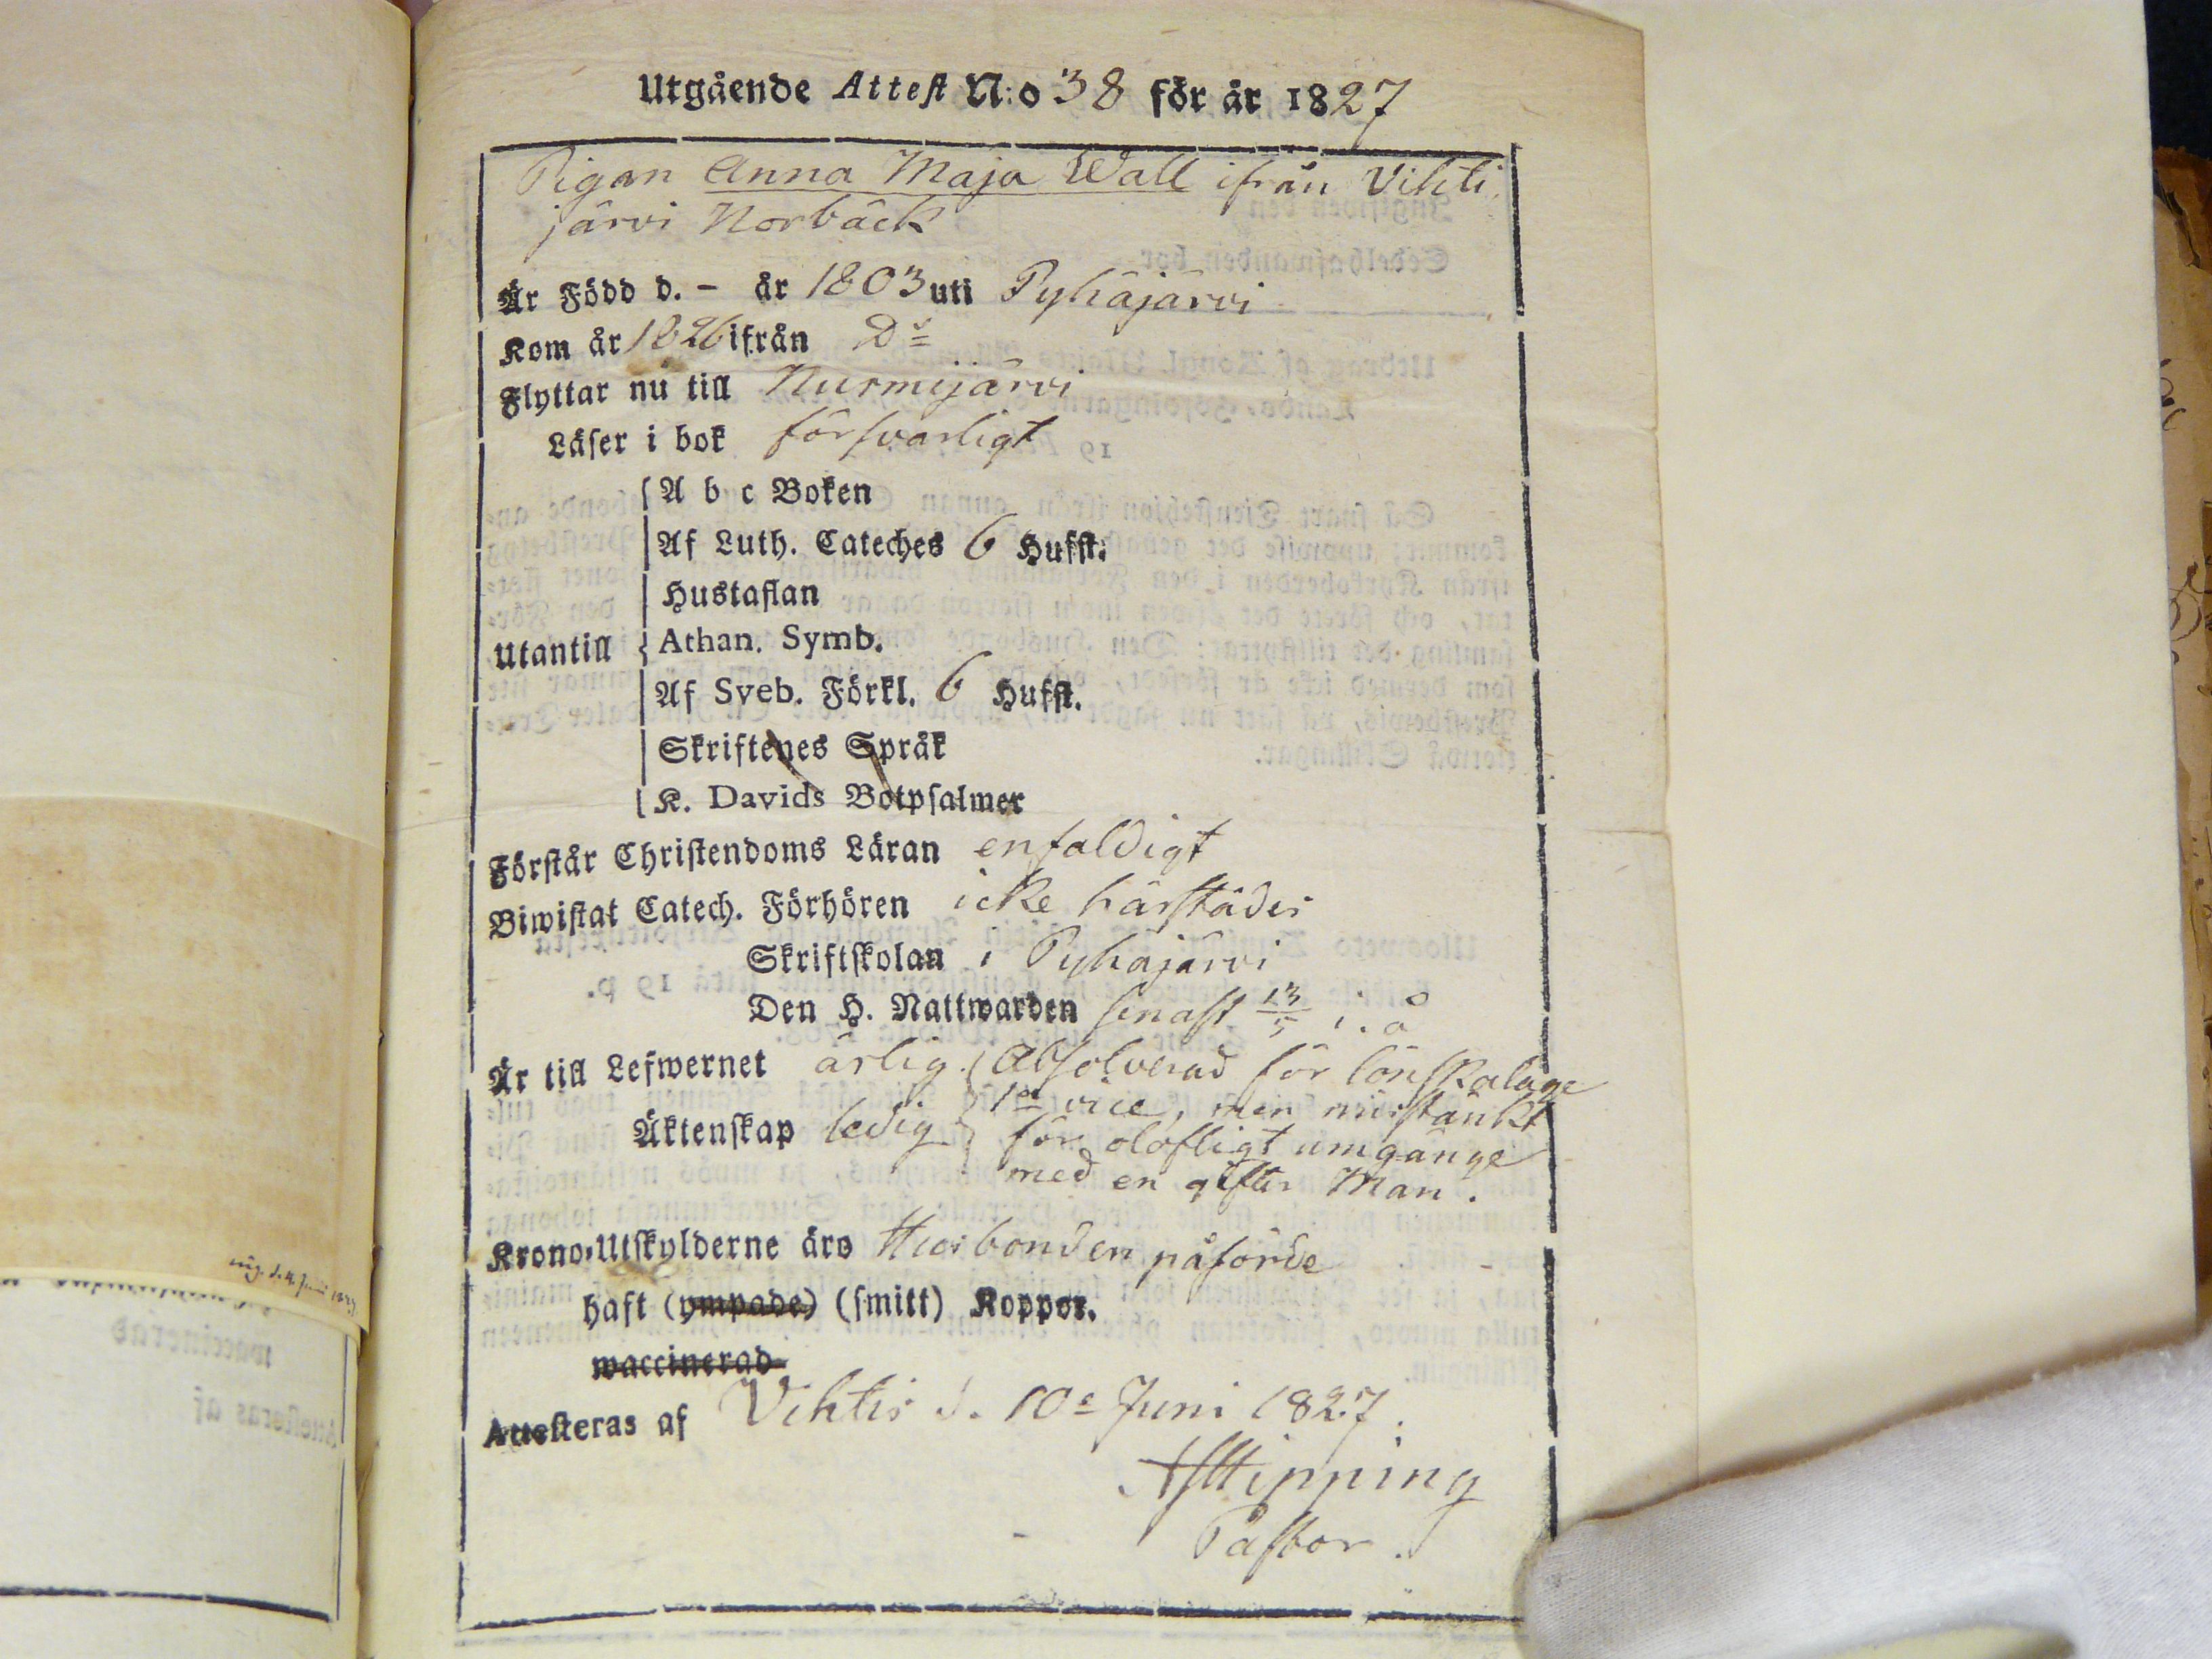 Utgående Attest N:o 38 för år 1827
Pigan Anna Maja Wall ifrån Vihti
järvi Norbäck
Är Född d. – år 1803 uti Pyhäjärvi
Kom år 1826 ifrån Do
Flyttar nu till Nurmijärvi
Läser i bok försvarligt
A b c Boken
Af Luth. Cateches 6 Hufst.
Hustaflan
Utantill Athan. Symb.
Af Sveb. Förkl. 6 Hufst.
Skriftenes Språk
K. Davids Botpsalmer
Förstår Christendoms Läran enfaldigt
Biwistat Catech. Förhören icke härstädes
Skriftskolan i Pyhäjärvi
Den H. Nattwarden senast 13/5 i. å
Är till Lefwernet ärlig. Absolverad för lönskaläge
1a vice, men misstänkt
Äktenskap ledig för olofligt umgänge
med en gifter Man.
Krono-Utskylderne äro Husbonden påförde
haft (ympade) (smitt) Koppor.
waccinerad
Attesteras af Vihtis d. 10e Juni 1827.
Pastor.
waccinerad
Attesteras af